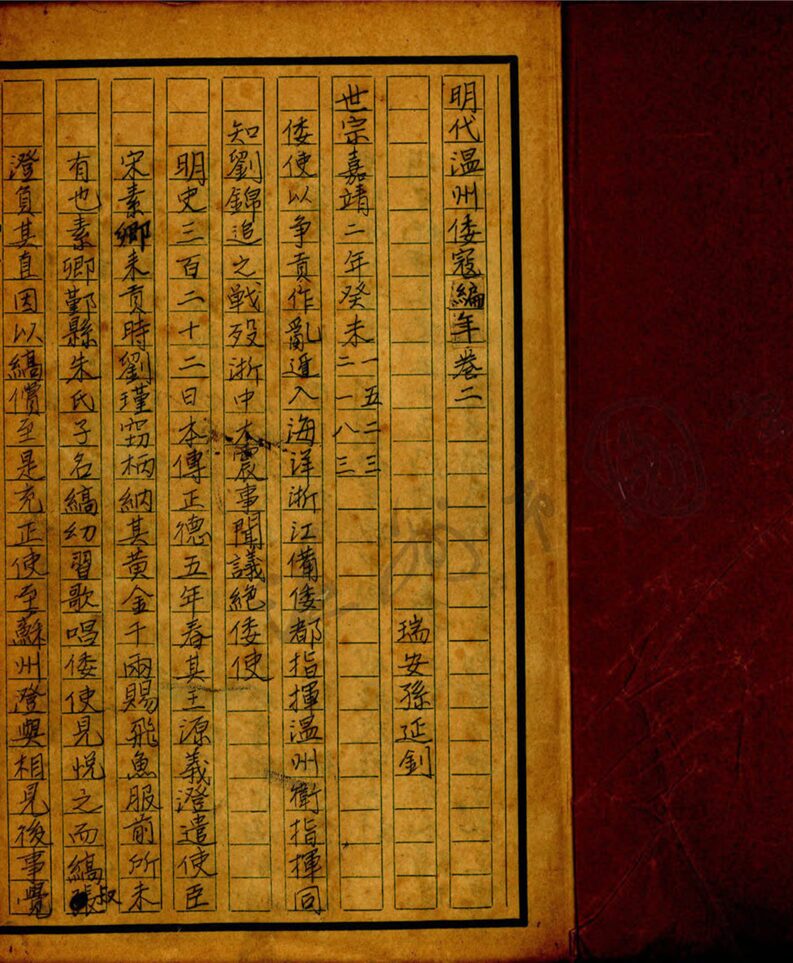 明代温州倭寇編年卷二
瑞安孫延釗
世宗嘉靖二年癸未一五二三二一八三
倭使以争貢作亂遁入海洋浙江備倭都指揮温州衛指揮同
知劉錦追之戰歿浙中大震事聞議絶倭使
明史三百二十二日本傳正德五年春其王源義澄遣使臣
宋素卿来貢時劉瑾窃柄納其黄金千兩賜飛魚服前所未
有也素卿鄞縣朱氏子名縞幼習歌唱倭使見悦之而縞叔
澄負其直因以縞償至是充正使至蘇州澄與相見後事覺